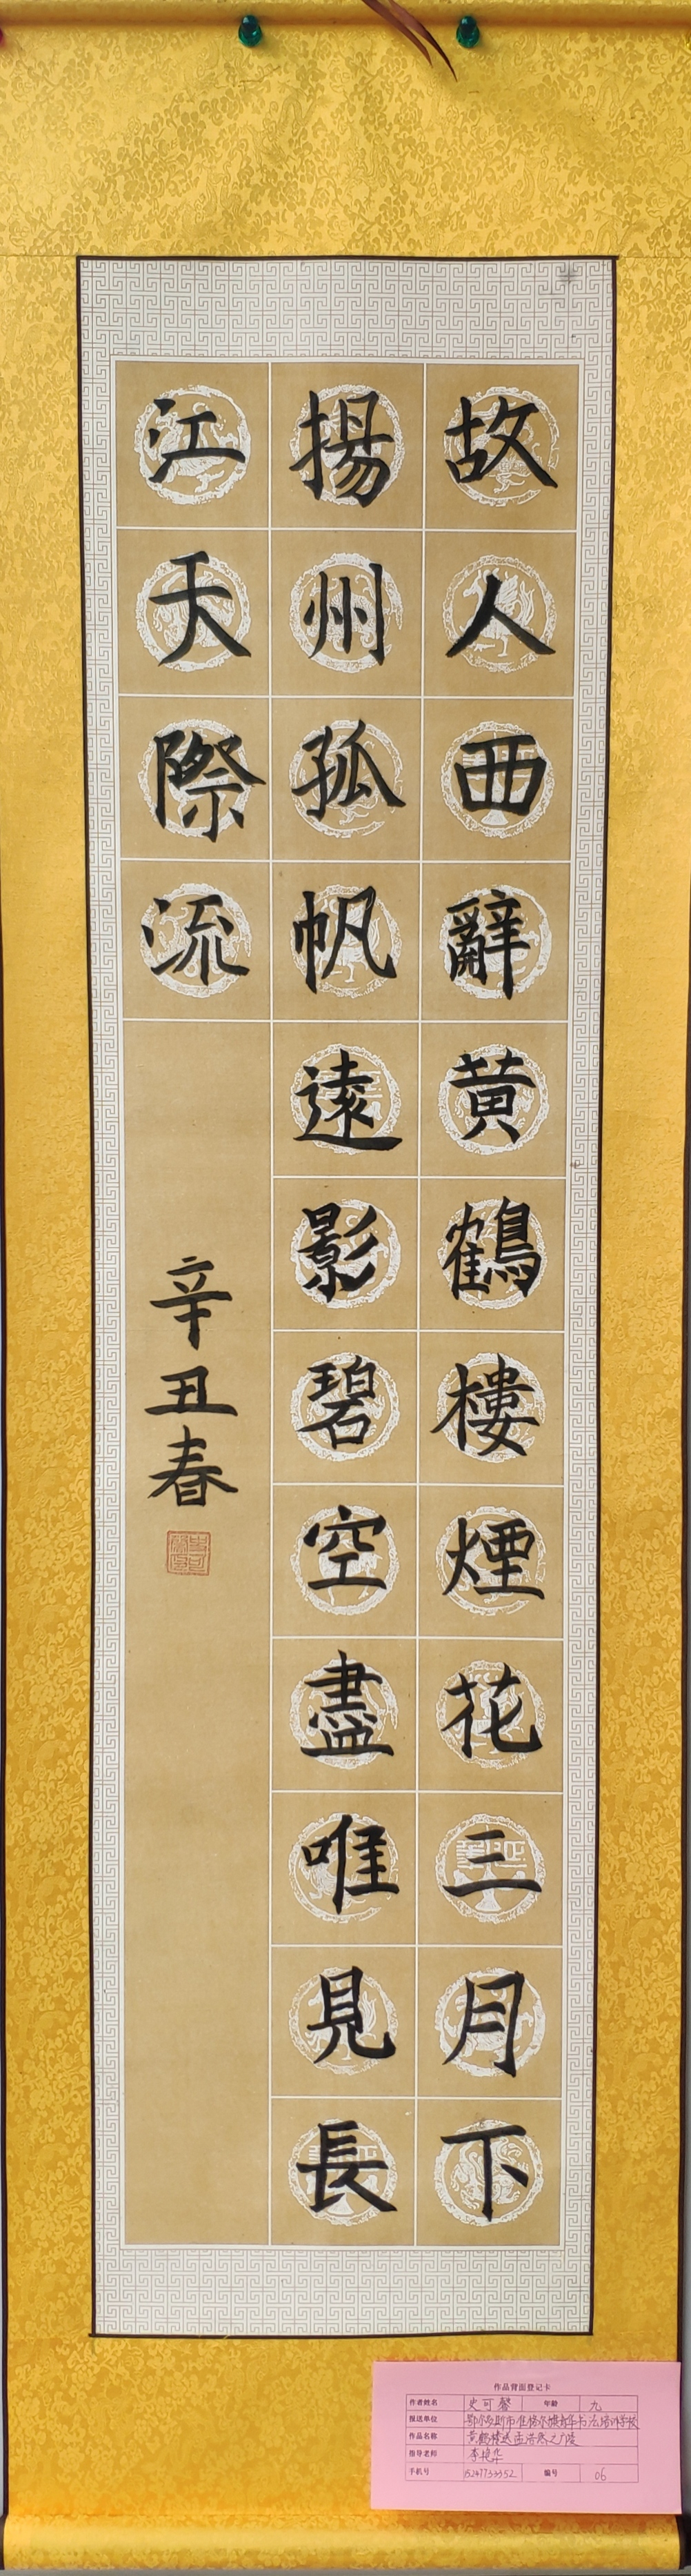 故人西辭黄鶴樓煙花三月下
揚州孤帆遠影碧空盡唯見長
江天際流
辛丑春
作品背面登记卡
作者姓名 史可馨 年龄 九
报送单位 鄂尔多斯市准格尔旗青华书法培训学校
作品名称 黄鹤楼送孟浩然之广陵
指导老师 李艳华
手机号 15247733352 编号 06